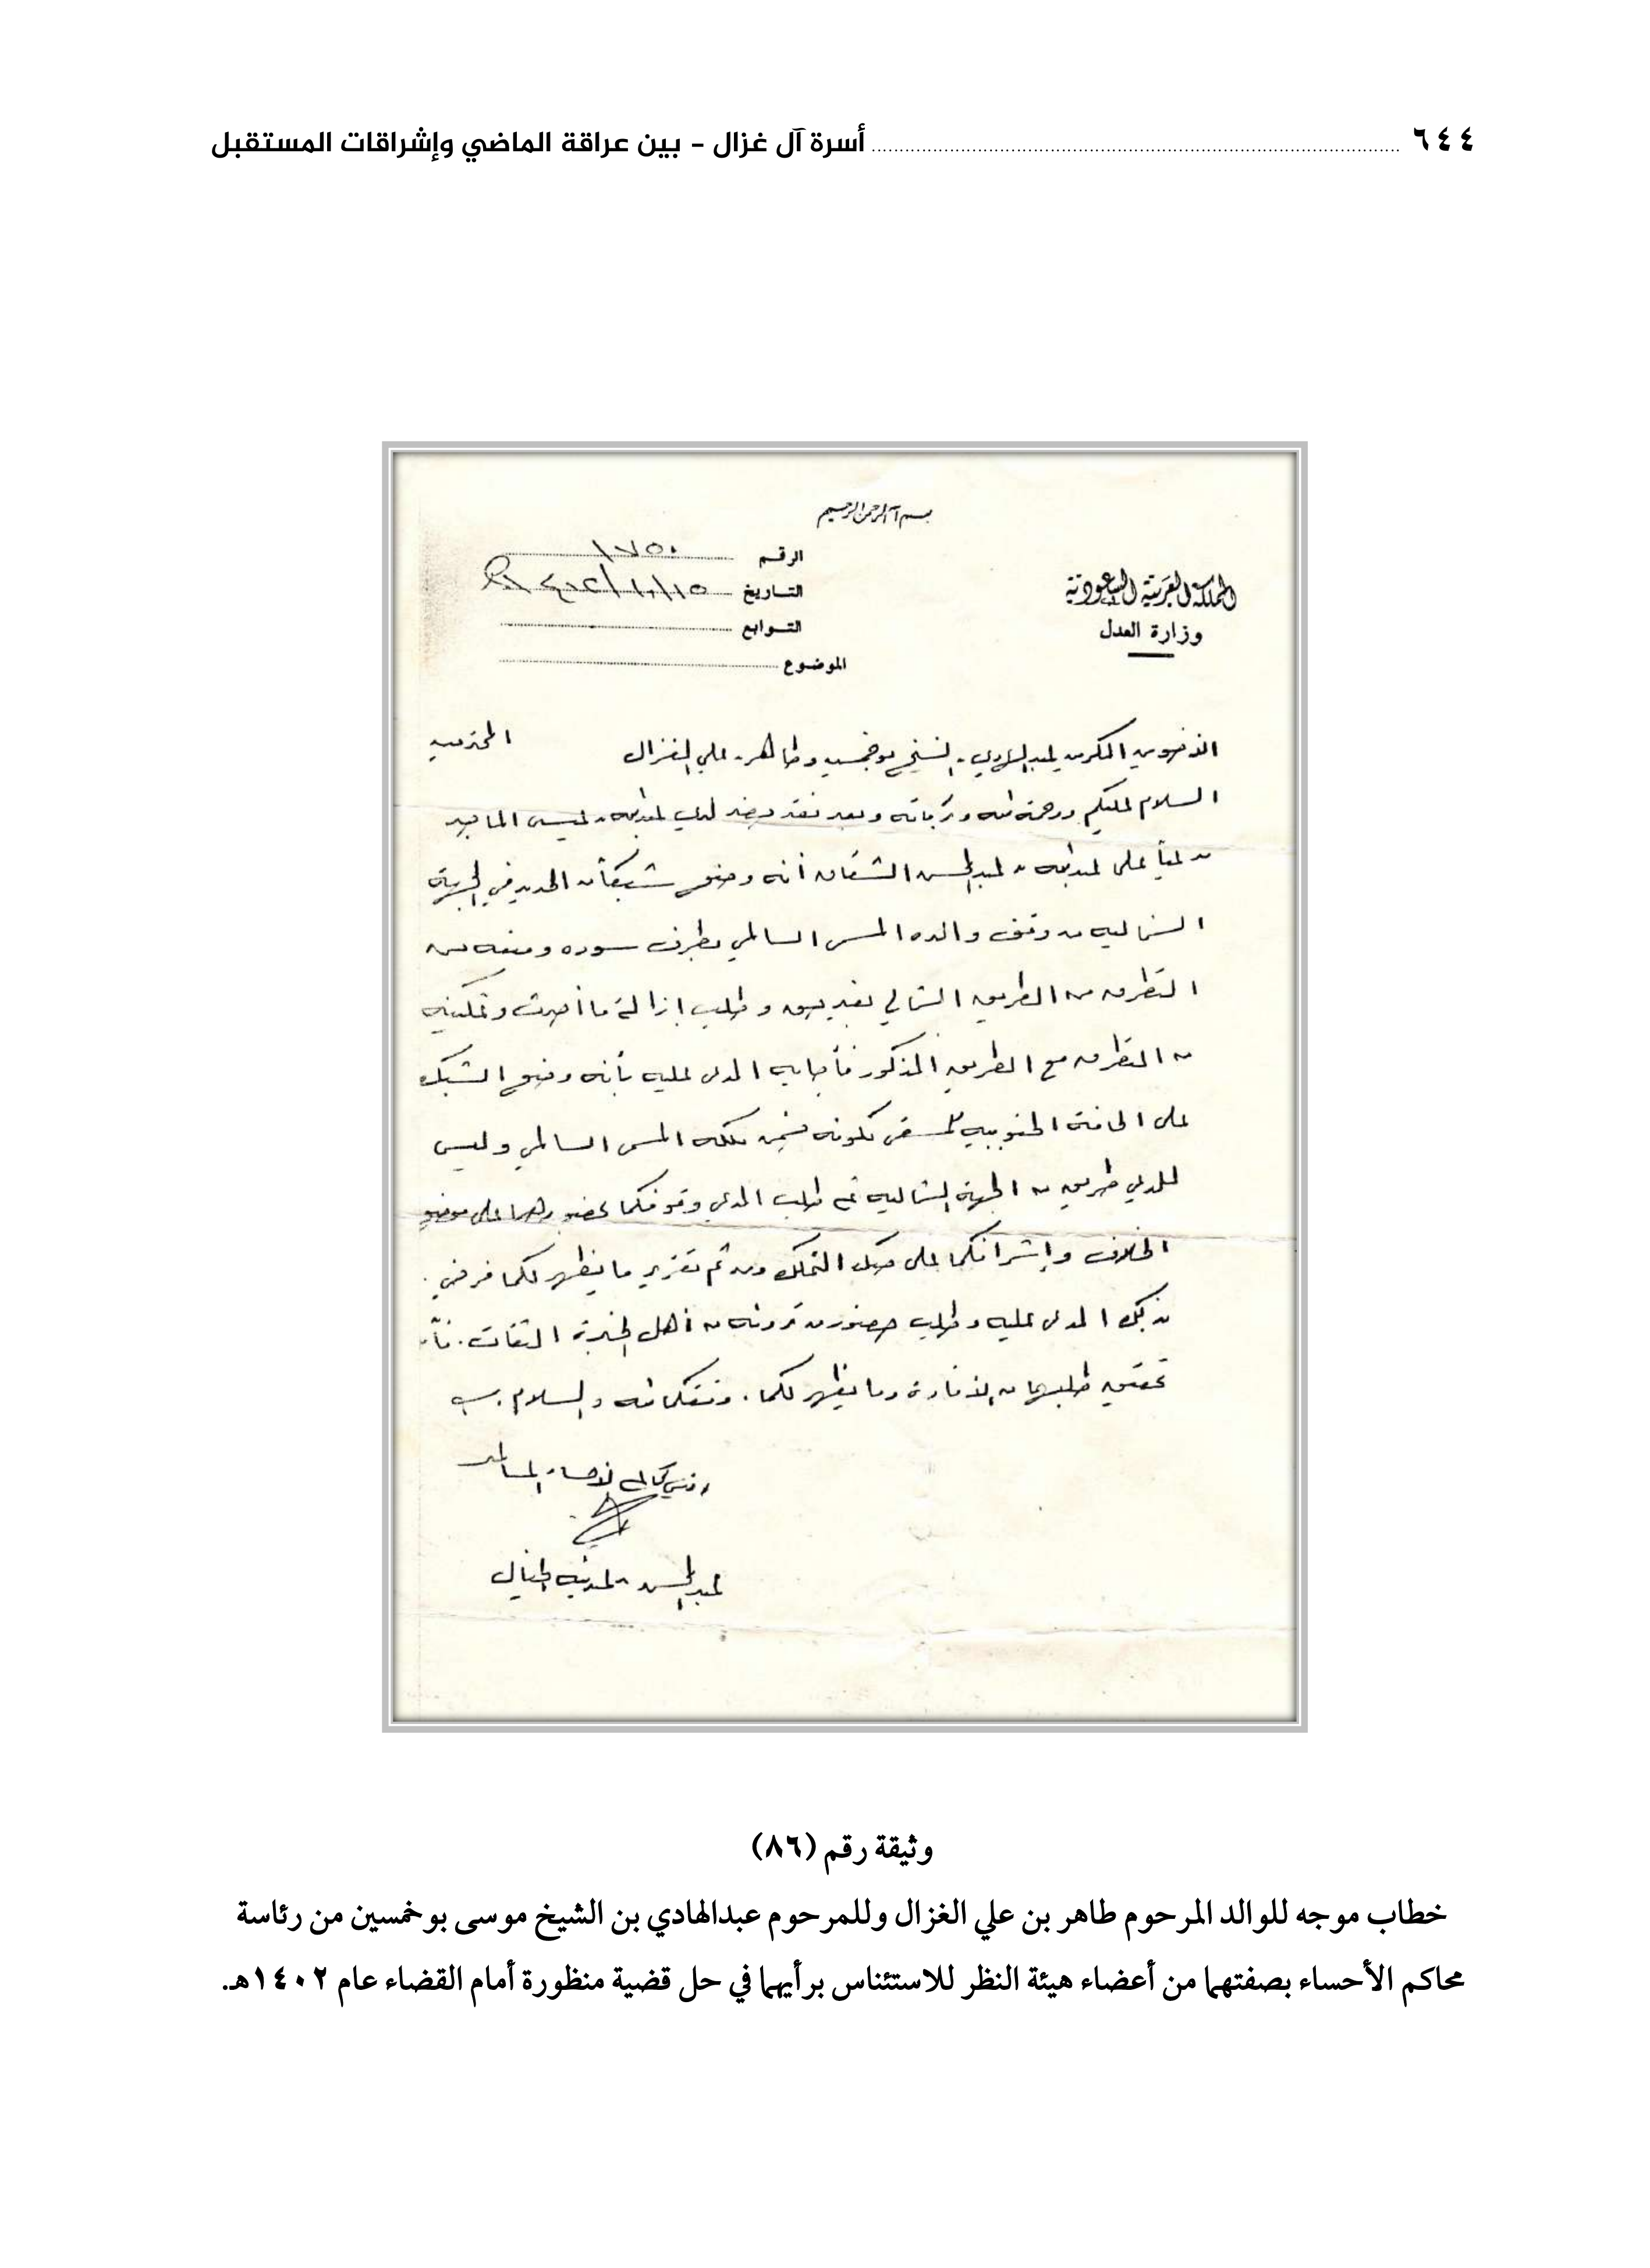 ٦٤٤ أسرة آل غزال - بين عراقة الماضي وإشراقات المستقبل
بسم الله الرحمن الرحيم
المملكة العربية السعودية
وزارة العدل
الرقم ١٧٥٠
التاريخ ١٤٠٢/١٠/١٥
التوابع
الموضوع
المكرمين عبدالهادي بن الشيخ بوخمسين وطاهر بن علي الغزال المحترمين
السلام عليكم ورحمة الله وبركاته وبعد فقد حضر لدي عبدالله بن عيسى الماجد
مدعياً على عبدالله بن عبدالمحسن الشقاق أنه وضع شبكاً من الحديد في الجهة
الشمالية من وقف والده المسمى السالمي بطرف سوده ومنعه من
التطرق من الطريق الشمالي بغير حق وطلب إزالة ما أحدث وتمكينه
من التطرق مع الطريق المذكور فأجاب المدعى عليه بأنه وضع الشبك
على الحافة الجنوبية للمسقى لكونه ضمن ملكه المسمى السالمي وليس
للمدعي طريق من الجهة الشمالية ثم طلب المدعي وقوفكما بحضورهما على موضع
الخلاف وإشرافكما على صك التملك ومن ثم تقرير ما يظهر لكما فرضي
بذلك المدعى عليه وطلب حضور من ترونه من أهل الخبرة الثقات.
تحقيق طلبهما من الإفادة وما يظهر لكما. وفقكما الله والسلام
رئيس محاكم الأحساء المساعد
عبدالمحسن بن عبدالله الخيال
وثيقة رقم (٨٦)
خطاب موجه للوالد المرحوم طاهر بن علي الغزال وللمرحوم عبدالهادي بن الشيخ موسى بوخمسين من رئاسة
محاكم الأحساء بصفتهما من أعضاء هيئة النظر للاستئناس برأيهما في حل قضية منظورة أمام القضاء عام ١٤٠٢هـ.